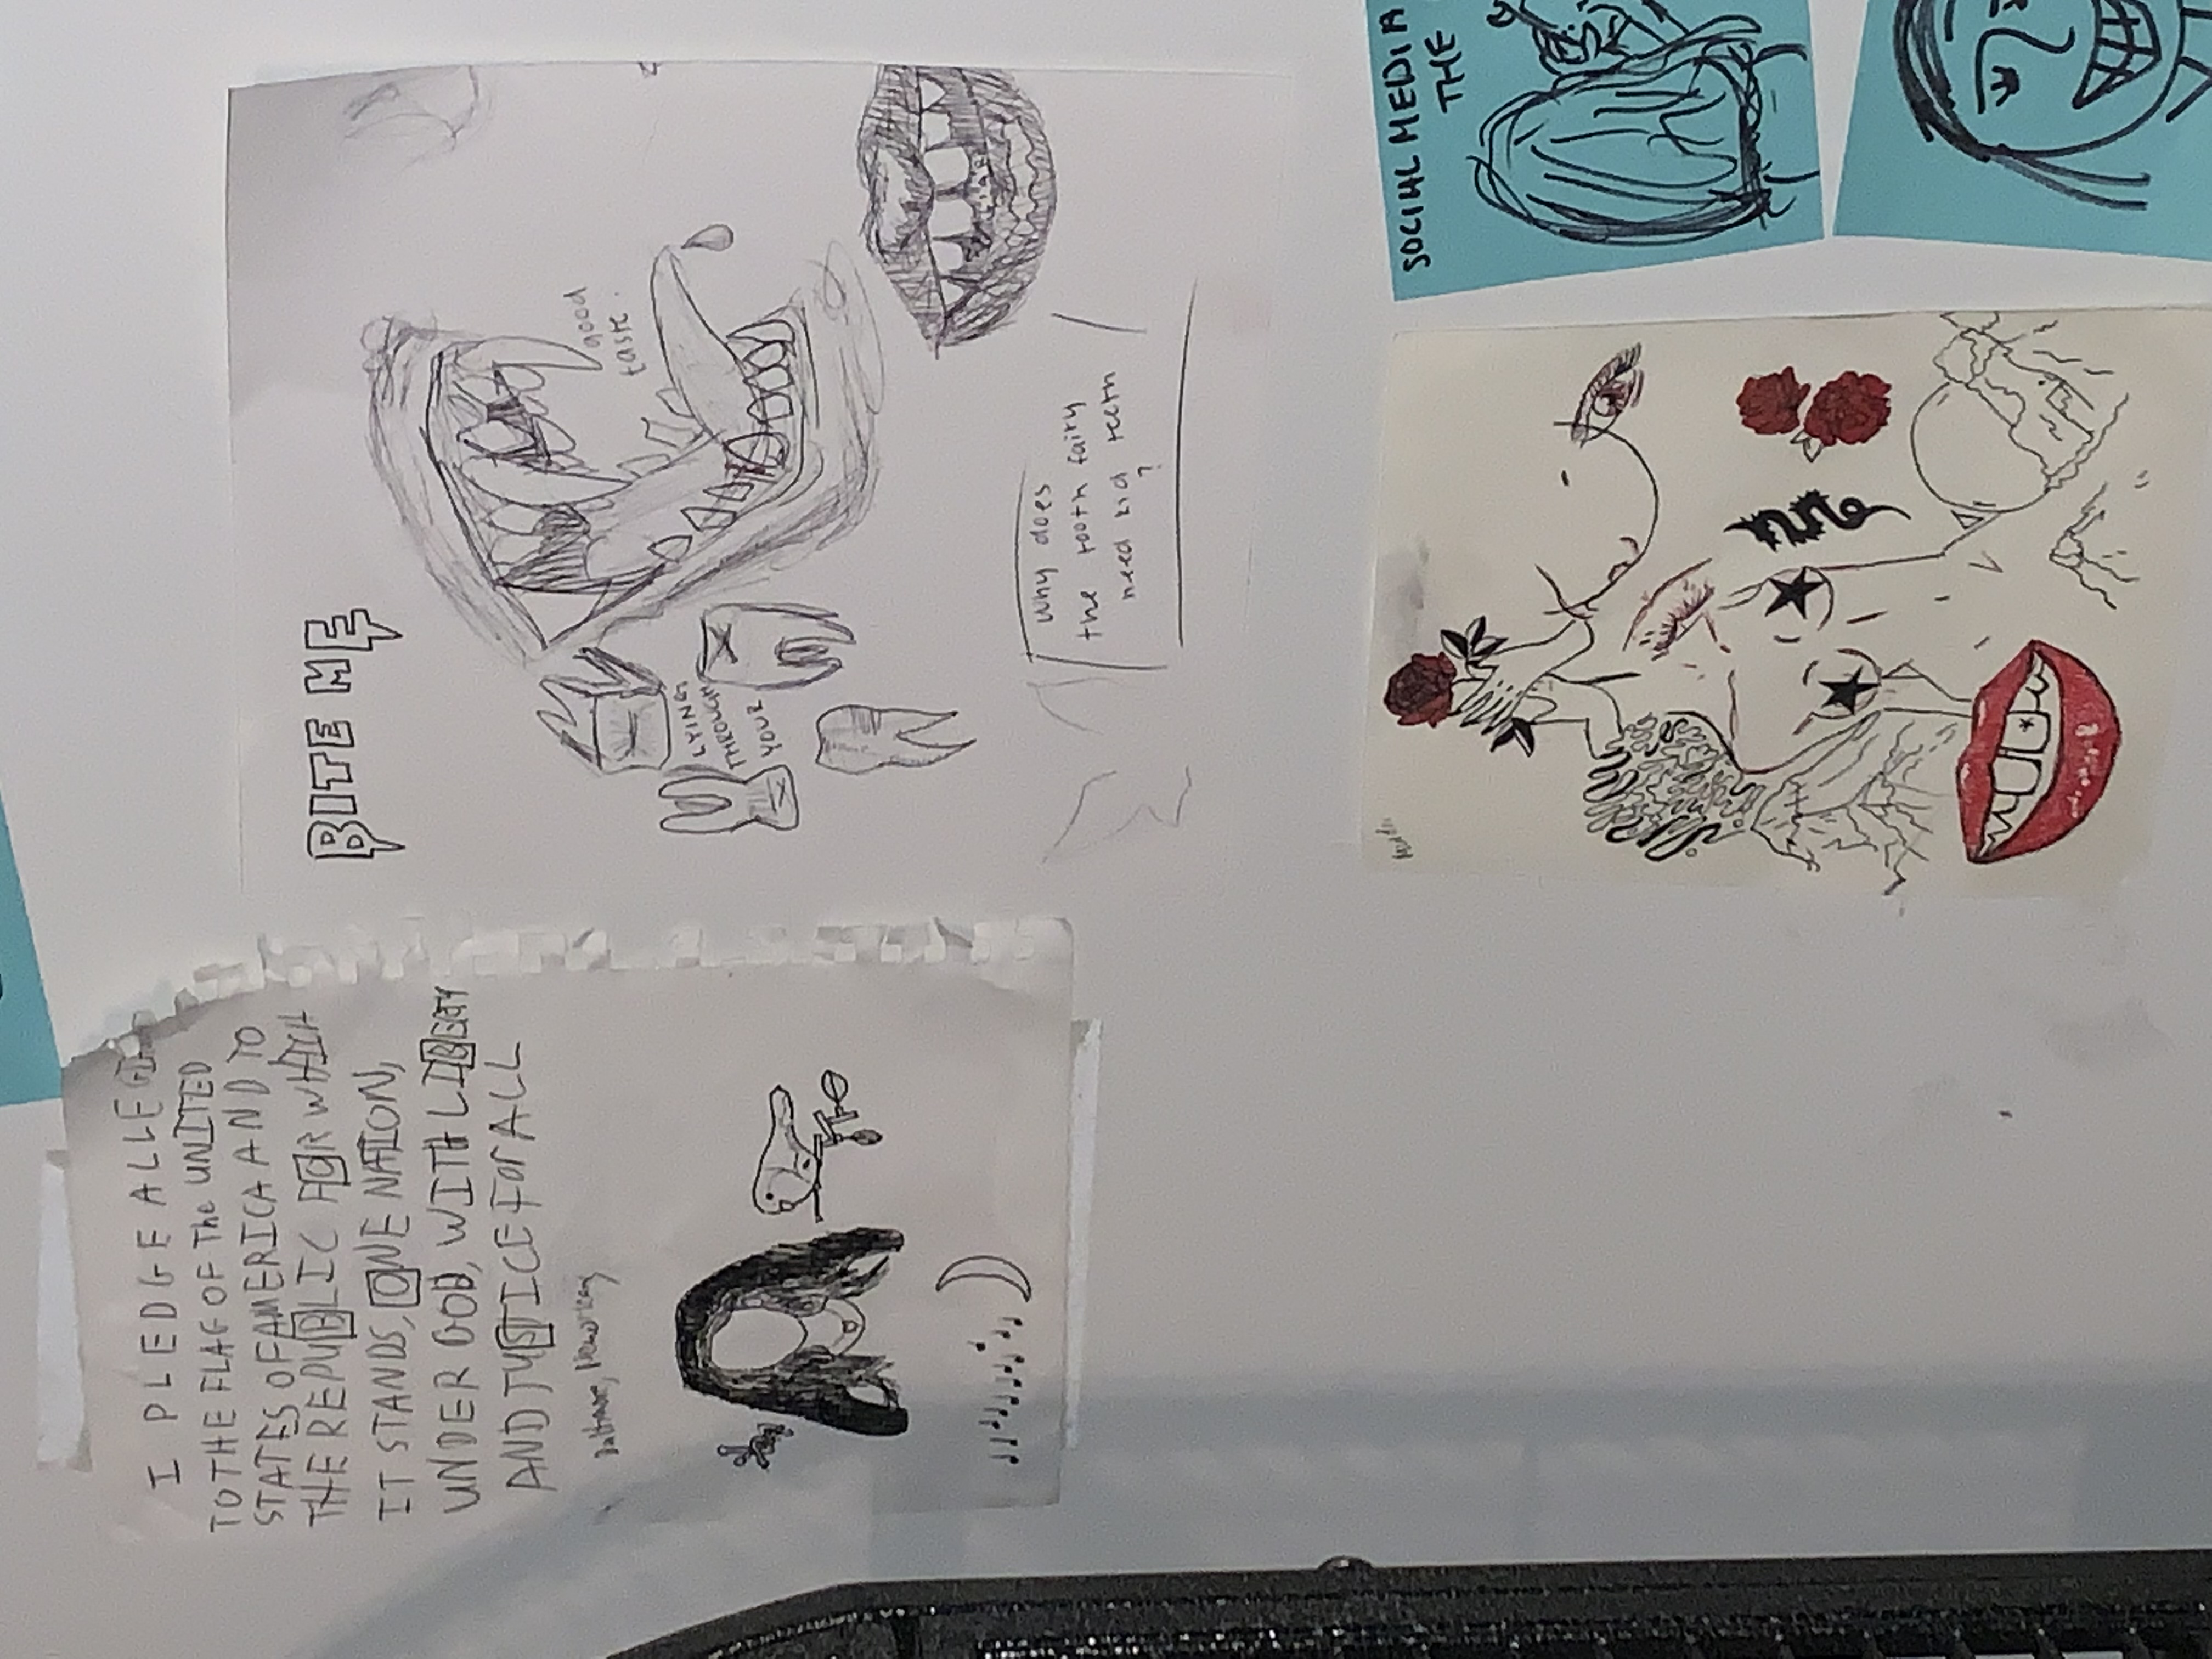 I PLEDGE ALLEGI
TO THE FLAG OF The UNITED
STATES OF AMERICA AND TO
THE REPUBLIC FOR WHICH
IT STANDS, ONE NATION,
UNDER GOD, WITH LIBERTY
AND JUSTICE FOr ALL
BITE ME
good
taste.
LYING
THROUGH
YOUR
Why does
the tooth fairy
need kid teeth
?
SOCIAL MEDIA
THE